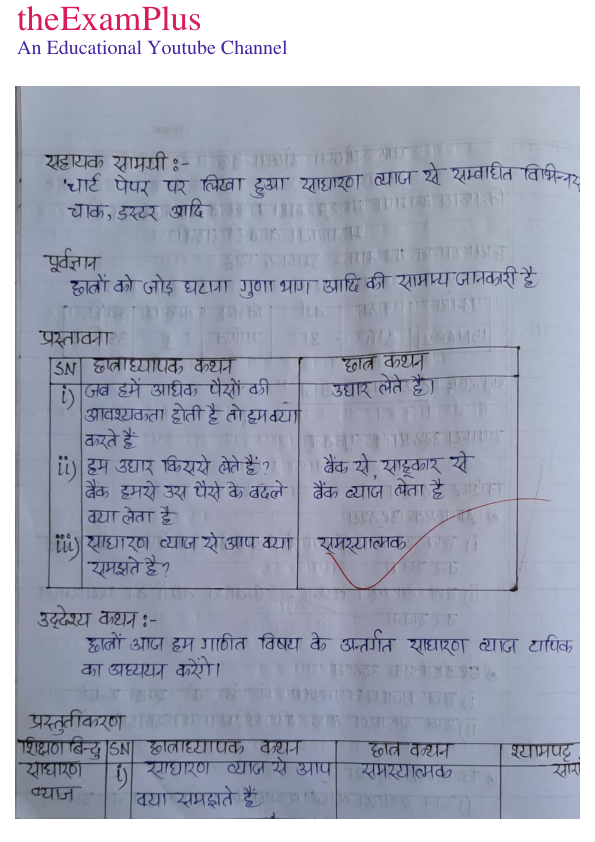 theExamPlus
An Educational Youtube Channel
सहायक सामग्री :-
चार्ट पेपर पर लिखा हुआ साधारण व्याज से सम्बाधित
चाक, डस्टर आदि
पूर्वज्ञान
छात्रों को जोड़ घटाना गुणा भाग आदि की सामान्य जानकारी है
प्रस्तावना
SN छात्राध्यापक कथन छात्र कथन
i) जब हमें अधिक पैसों की उधार लेते हैं।
आवश्यकता होती है तो हम क्या
करते हैं
ii) हम उधार किससे लेते हैं? बैंक से, साहूकार से
बैंक हमसे उस पैसे के बदले बैंक व्याज लेता है
क्या लेता है
iii) साधारण व्याज से आप क्या समस्यात्मक
समझते है?
उद्देश्य कथन :-
छात्रों आज हम गणित विषय के अन्तर्गत साधारण व्याज टापिक
का अध्ययन करेंगे।
प्रस्तुतीकरण
शिक्षण बिन्दु SN छात्राध्यापक कथन छात्र कथन श्यामपट्ट
साधारण i) साधारण व्याज से आप समस्यात्मक
व्याज क्या समझते हैं